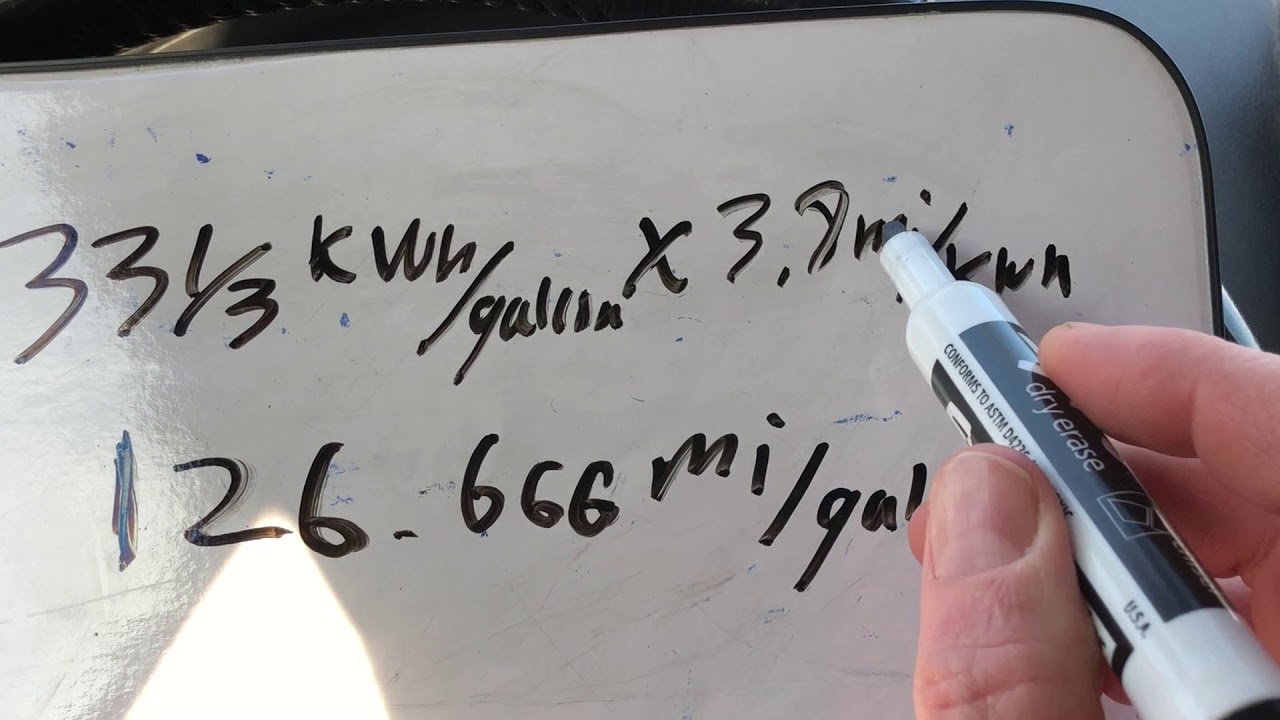 33 1/3 kWh/gallon x 3.8 mi/kWh
126.666 mi/gal
CONFORMS TO ASTM
dry erase
U.S.A.